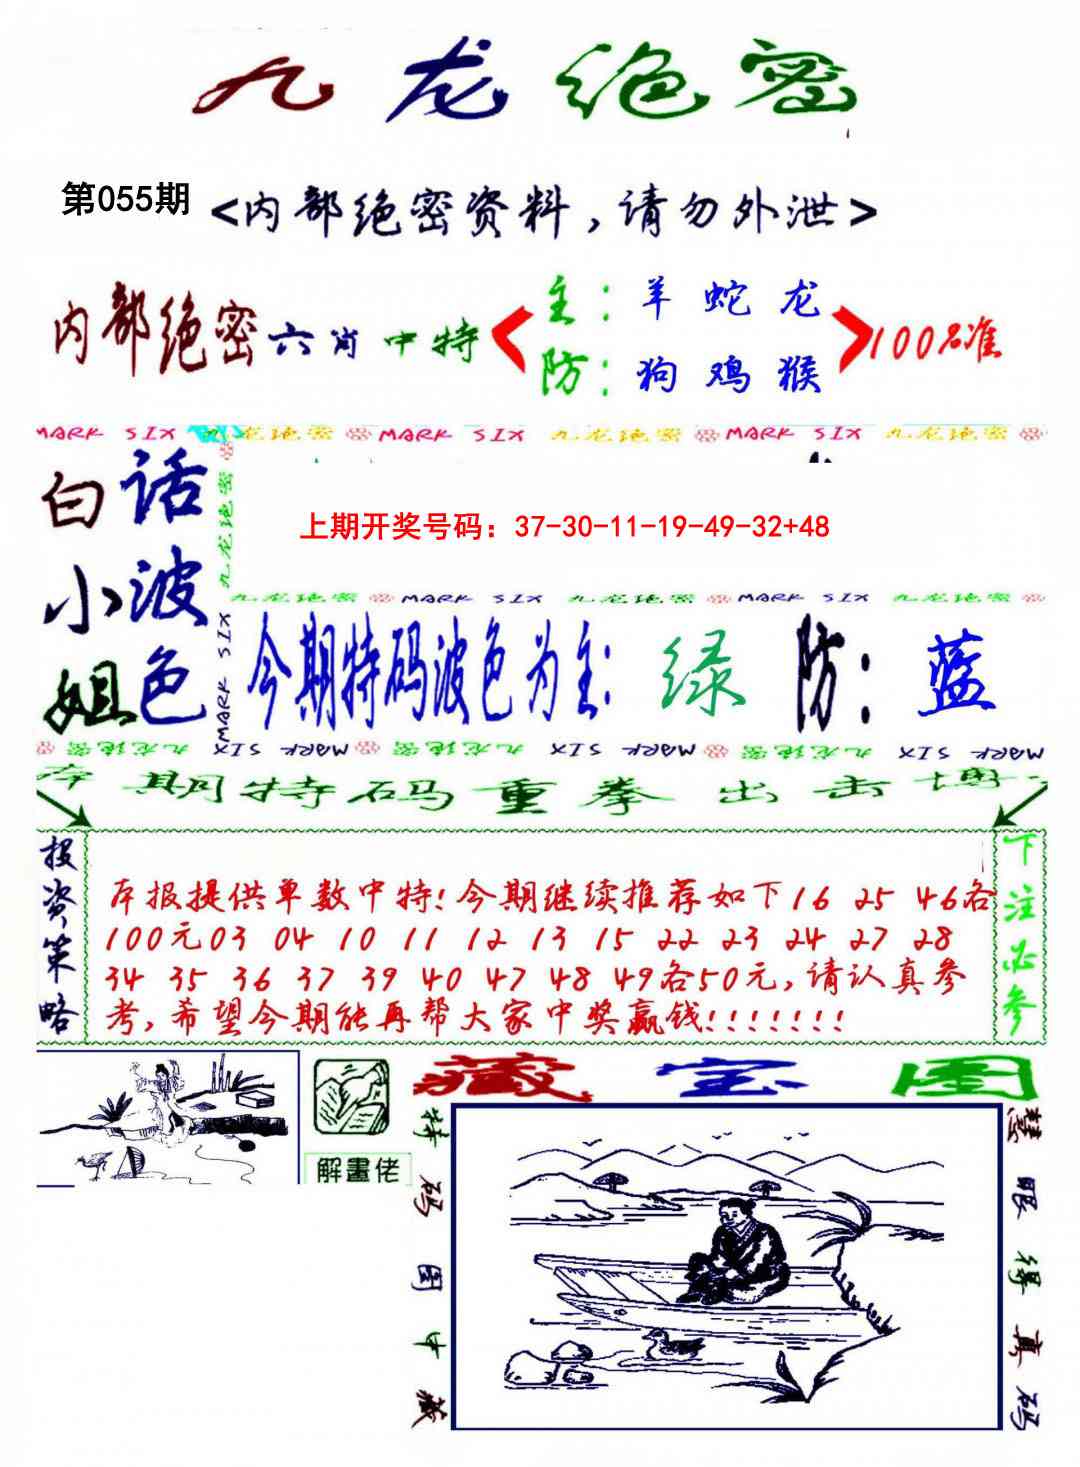 九龙绝密
第055期
<内部绝密资料,请勿外泄>
内部绝密六肖中特
主:羊 蛇 龙
防:狗 鸡 猴
100%准
MARK SIX 九龙绝密 MARK SIX 九龙绝密 MARK SIX 九龙绝密
白话小波姐色
九龙绝密
MARK SIX
上期开奖号码：37-30-11-19-49-32+48
九龙绝密 MARK SIX 九龙绝密 MARK SIX 九龙绝密
今期特码波色为主: 绿 防: 蓝
九龙绝密 MARK SIX 九龙绝密 MARK SIX 九龙绝密 MARK SIX
本期特码重拳出击博
投资策略
本报提供单数中特!今期继续推荐如下16 25 46各
100元03 04 10 11 12 13 15 22 23 24 27 28
34 35 36 37 39 40 47 48 49各50元,请认真参
考,希望今期能再帮大家中奖赢钱!!!!!!!
下注必参
解畫佬
藏宝图
特码图中藏
慧眼得真码